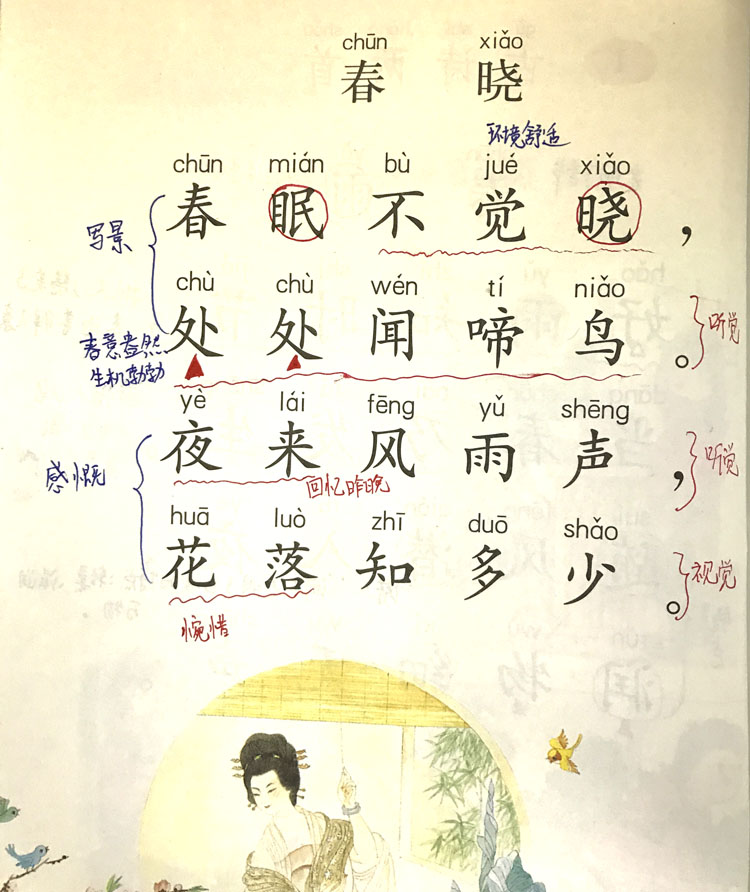 chūn xiǎo
春 晓
环境舒适
chūn mián bù jué xiǎo
春 眠 不 觉 晓，
写景
chù chù wén tí niǎo
处 处 闻 啼 鸟。
听觉
春意盎然
生机勃勃
yè lái fēng yǔ shēng
夜 来 风 雨 声，
听觉
感慨
回忆昨晚
huā luò zhī duō shǎo
花 落 知 多 少。
视觉
惋惜